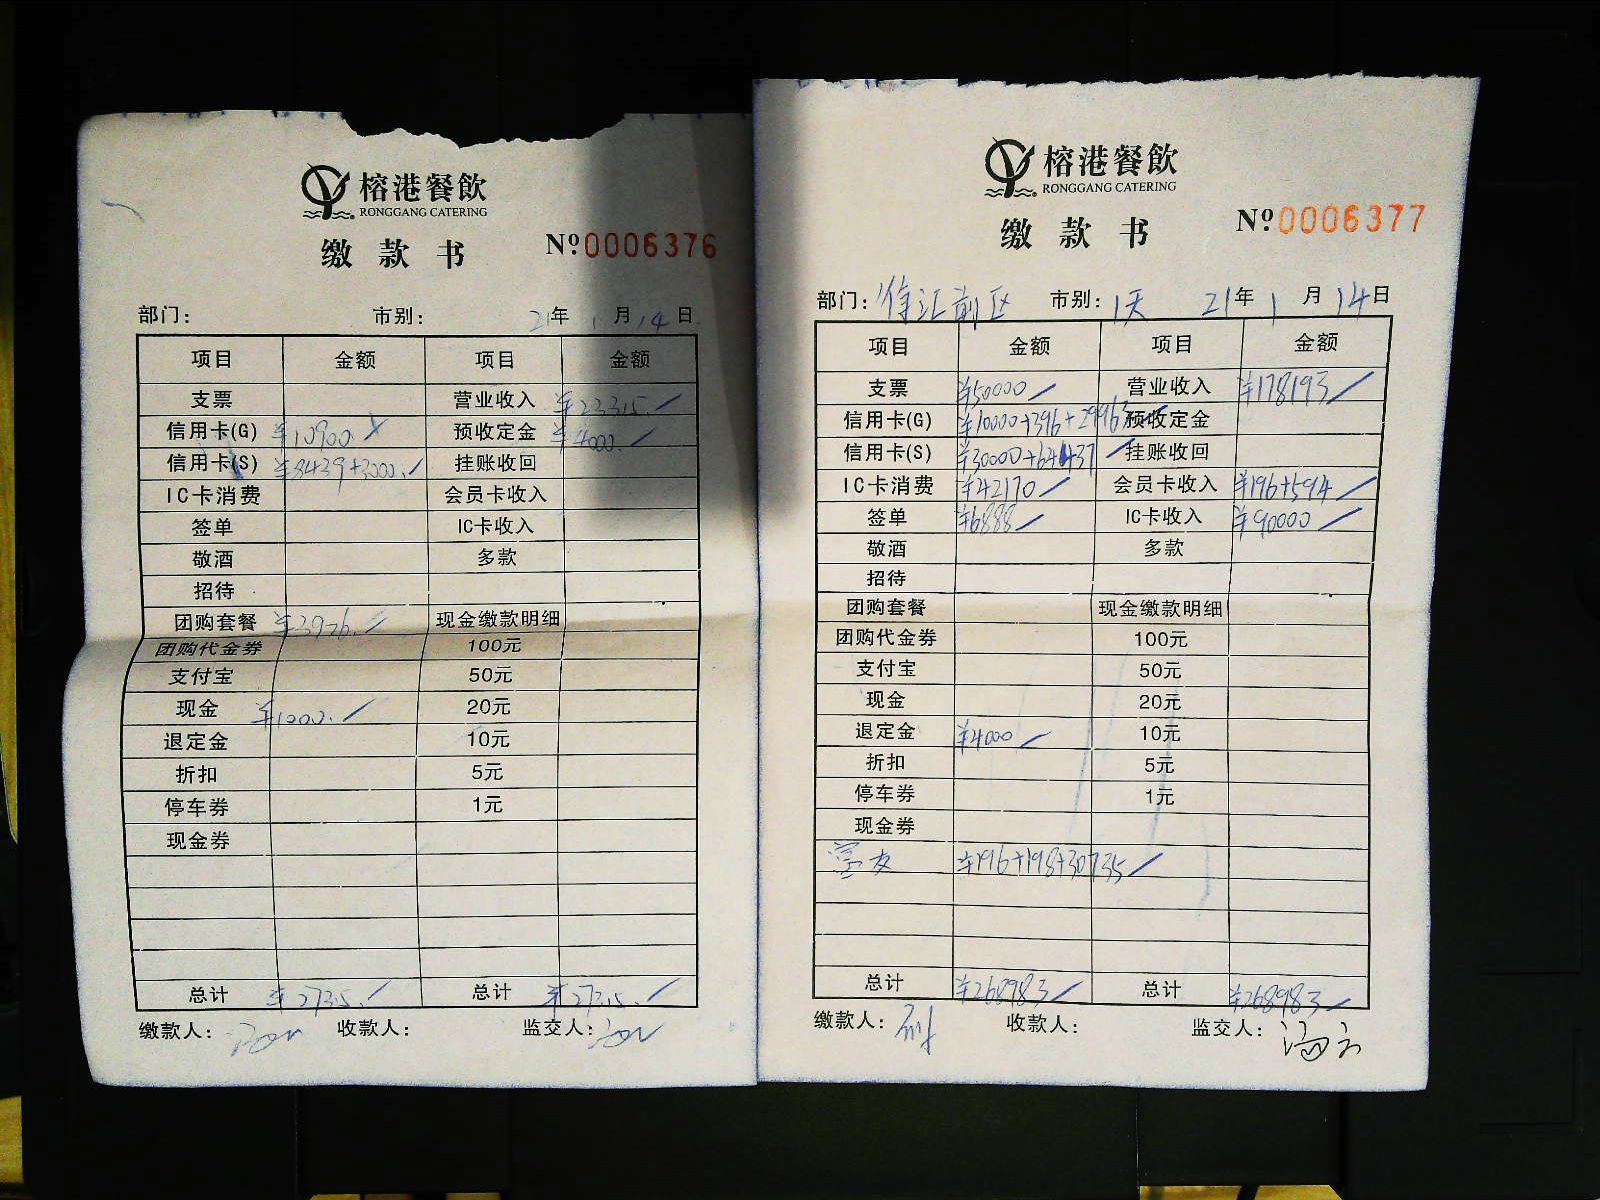 榕港餐飲
RONGGANG CATERING
缴款书 №0006376
部门: 市别: 21年1月14日
项目 金额 项目 金额
支票 营业收入 ¥23315.
信用卡(G) ¥10900. 预收定金 ¥4000.
信用卡(S) ¥8439+3000. 挂账收回
IC卡消费 会员卡收入
签单 IC卡收入
敬酒 多款
招待
团购套餐 ¥3976. 现金缴款明细
团购代金券 100元
支付宝 50元
现金 ¥1000. 20元
退定金 10元
折扣 5元
停车券 1元
现金券
总计 ¥27315. 总计 ¥27315.
缴款人: 收款人: 监交人:
榕港餐飲
RONGGANG CATERING
缴款书 №0006377
部门: 徐汇前区 市别: 1天 21年1月14日
项目 金额 项目 金额
支票 ¥50000 营业收入 ¥178193
信用卡(G) ¥10000+396+29963 预收定金
信用卡(S) ¥30000+64437 挂账收回
IC卡消费 ¥42170 会员卡收入 ¥196+594
签单 ¥6888 IC卡收入 ¥90000
敬酒 多款
招待
团购套餐 现金缴款明细
团购代金券 100元
支付宝 50元
现金 20元
退定金 ¥4000 10元
折扣 5元
停车券 1元
现金券
¥196+198+30735
总计 ¥268983 总计 ¥268983
缴款人: 收款人: 监交人: